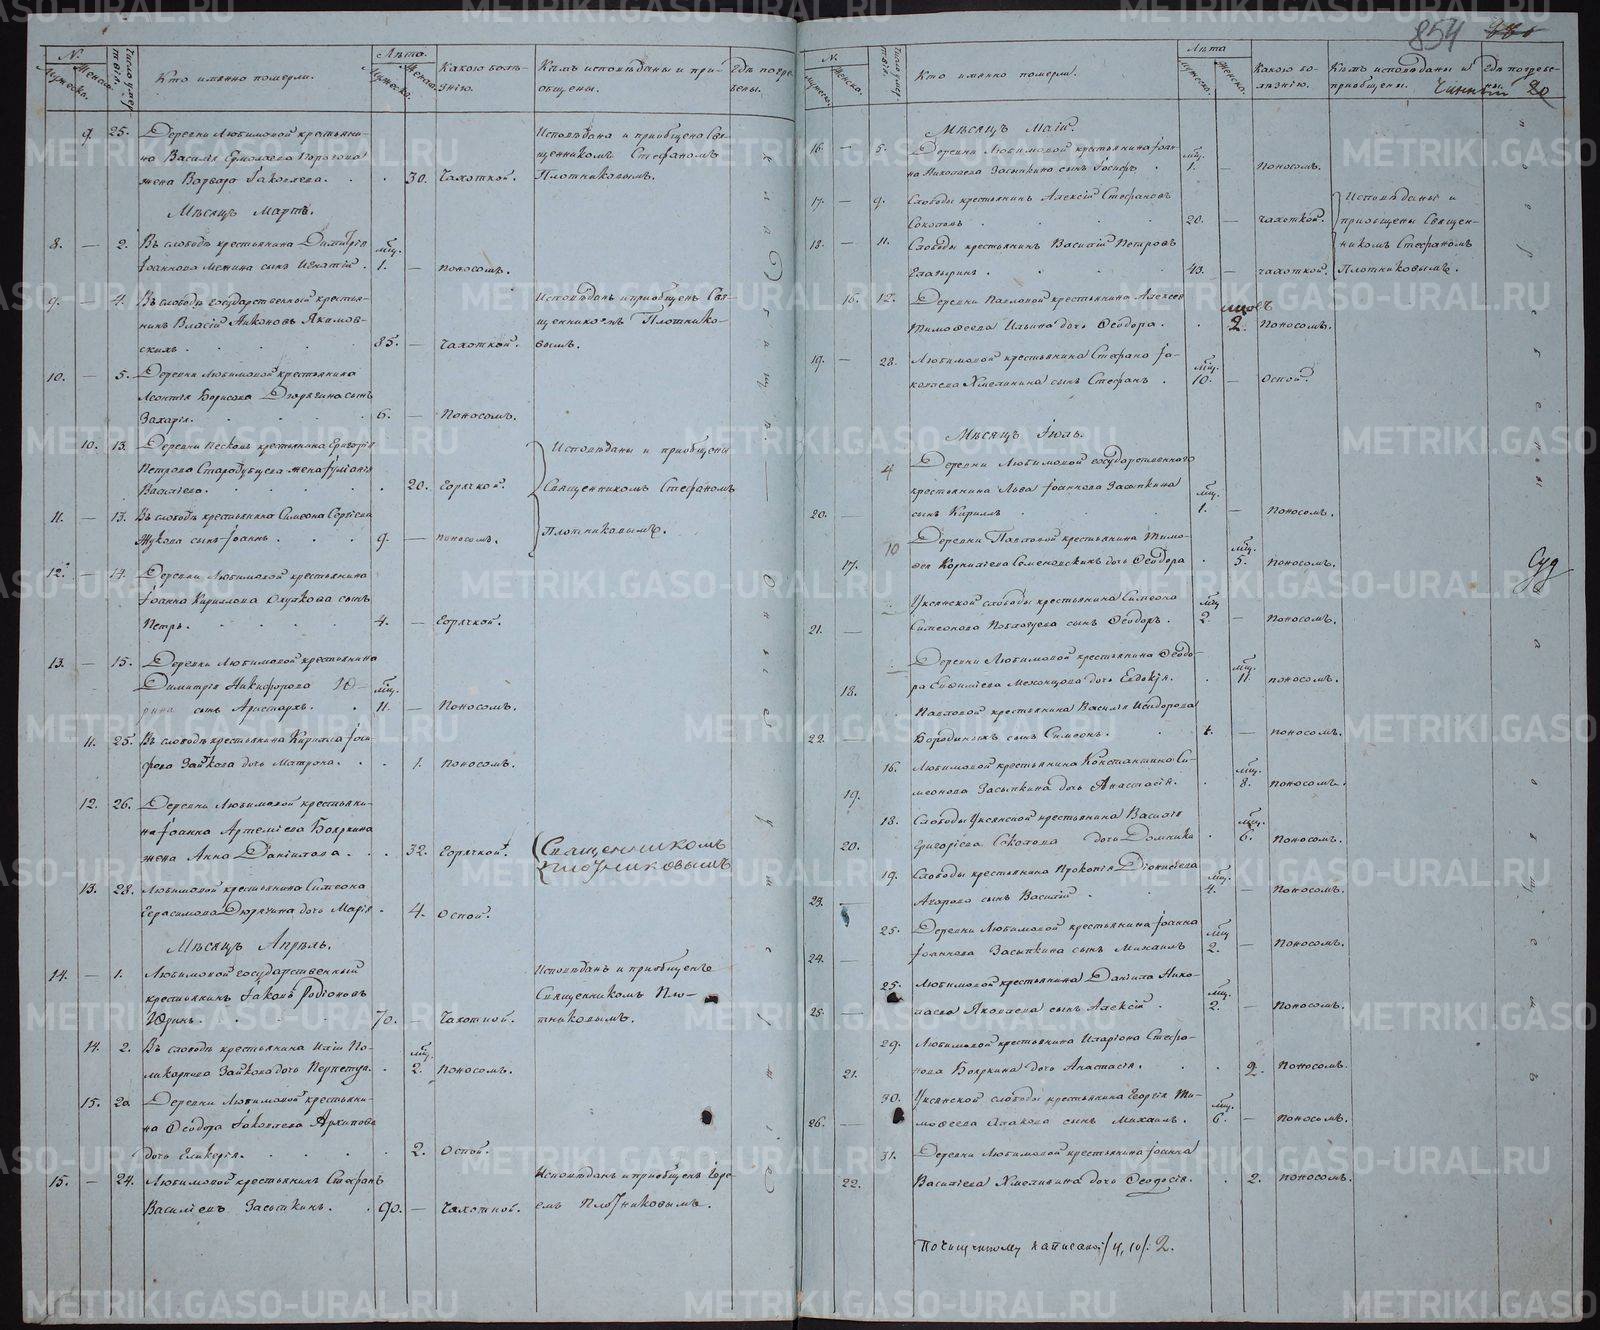 854
№
Мужеска.
Женска.
Число умер-
твія.
Кто именно померли.
Лѣта.
Мужеска.
Женска.
Какою болѣ-
знію.
Кѣмъ исповѣданы и прі-
общены.
Гдѣ погре-
бены.
9. 25. Деревни Любимовой крестьяни-
на Василія Ермолаева
жена Варвара Іаковлева. 30. Чахоткой.
Исповѣдана и приобщена Свя-
щенникомъ Стефаномъ
Плотниковымъ.
Мѣсяцъ Мартъ.
8. — 2. Въ слободѣ крестьянина Димитрія
Іоаннова сынъ Игнатій. мѣц. 1. — Поносомъ.
9. — 4. Въ слободѣ государственный крестья-
нинъ Власій Никоновъ Якимов-
скихъ. 85. — Чахоткой.
Исповѣданъ и приобщенъ Свя-
щенникомъ Плотнико-
вымъ.
10. — 5. Деревни Любимовой крестьянина
Леонтія Борисова сынъ
Захарія. 6. — Поносомъ.
10. 13. Деревни Песковъ крестьянина Григорія
Петрова Стародубцева жена Іуліанія
Василіева. 20. Горячкой.
Исповѣданы и приобщены
Священникомъ Стефаномъ
Плотниковымъ.
11. — 13. Въ слободѣ крестьянина Симеона Сергіева
Жукова сынъ Іоаннъ. 9. — поносомъ.
12. — 14. Деревни Любимовой крестьянина
Іоанна Кириллова сынъ
Петръ. 4. — Горячкой.
13. — 15. Деревни Любимовой крестьянина
Димитрія Никифорова Ю-
рина сынъ Аристархъ. мѣц. 11. — Поносомъ.
11. 25. Въ слободѣ крестьянина Кирилла Іоси-
фова Зайкова дочь Матрона. 1. поносомъ.
12. 26. Деревни Любимовой крестьяни-
на Іоанна Артеміева Бояркина
жена Анна Даніилова. 32. Горячкой.
Священникомъ
Плотниковымъ
13. 28. Любимовой крестьянина Симеона
Герасимова Дюрягина дочь Марія. 4. Оспой.
Мѣсяцъ Апрѣль.
14. — 1. Любимовой государственный
крестьянинъ Іаковъ Родіоновъ
Юринъ. 70. Чахоткой.
Исповѣданъ и приобщенъ
Священникомъ Пло-
тниковымъ.
14. 2. Въ слободѣ крестьянина Иліи По-
ликарпова Зайкова дочь Перпетуя. мѣц. 2. поносомъ.
15. 20 Деревни Любимовой крестьяни-
на Ѳеодора Іаковлева Архипова
дочь Гликерія. 2. Оспой.
15. — 24. Любимовой крестьянинъ Стефанъ
Василіевъ Засыпкинъ. 90. — Чахоткой.
Исповѣданъ и приобщенъ Іере-
емъ Плотниковымъ.
№
Мужеска.
Женска.
Кто именно померли.
Лѣта
Мужеска.
Женска.
Какою бо-
лѣзнію.
Кѣмъ исповѣданы и
приобщены.
Гдѣ погребе-
ны.
20
Мѣсяцъ Маій.
16. — 5. Деревни Любимовой крестьянина Іоан-
на Николаева Засыпкина сынъ Іосифъ. мѣц. 1. — Поносомъ.
17. — 9. Слободы крестьянинъ Алексій Стефановъ
Соколовъ. 20. — чахоткой.
Исповѣданы и
приобщены Священ-
никомъ Стефаномъ
Плотниковымъ.
18. — 11. Слободы крестьянинъ Василій Петровъ
43. — чахоткой.
16. 12. Деревни Павловой крестьянина Алексея
Тимофеева Ильина дочь Ѳеодора. 2. поносомъ.
19. — 28. Любимовой крестьянина Стефана Іа-
ковлева Хмелинина сынъ Стефанъ. мѣц. 10. — Оспой.
Мѣсяцъ Іюль.
4 Деревни Любимовой государственного
крестьянина Льва Іоаннова Засыпкина
20. — сынъ Кириллъ. мѣц. 1. — поносомъ.
10 Деревни Павловой крестьянина Тимо-
17. фея Корнилаева Семеновскихъ дочь Ѳеодора мѣц. 5. поносомъ.
Уксянской слободы крестьянина Симеона
21. — Симеонова сынъ Ѳеодоръ. мѣц 2. — поносомъ.
Деревни Любимовой крестьянина Ѳеодо-
18. ра Евѳиміева Мехонцова дочь Евдокія. мѣц. 11. поносомъ.
Павловой крестьянина Василія Исидорова
22. — Бородиныхъ сынъ Симеонъ. 1. — поносомъ.
16. Любимовой крестьянина Константина Си-
19. меонова Засыпкина дочь Анастасія. мѣц. 8. поносомъ.
18. Слободы Уксянской крестьянина Василія
20. Григоріева Соколова дочь Домника мѣц. 6. поносомъ.
19. Слободы крестьянина Прокопія Діонисіева
23. — Агарова сынъ Василій. мѣц. 4. — поносомъ.
25. Деревни Любимовой крестьянина Іоанна
24. — Іоаннова Засыпкина сынъ Михаилъ мѣц 2. — поносомъ.
25. Любимовой крестьянина Даніила Нико-
25. — лаева Яковлева сынъ Алексій. мѣц. 2. — поносомъ.
29. Любимовой крестьянина Иларіона Стефа-
21. нова Бояркина дочь Анастасія. 2. поносомъ.
30. Уксянской слободы крестьянина Георгія Ти-
26. — мофеева сынъ Михаилъ. мѣц. 6. — поносомъ.
31. Деревни Любимовой крестьянина Іоанна
22. Василіева Хмелинина дочь Ѳеодосія. 2. поносомъ.